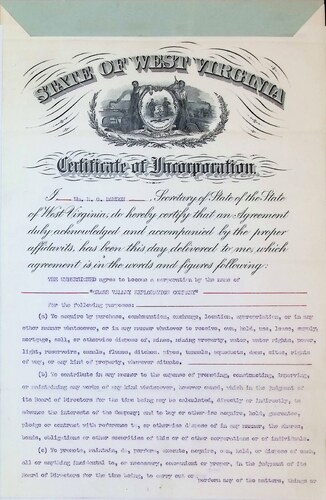 STATE OF WEST VIRGINIA
Certificate of Incorporation.
I, Wm. M. O. DAWSON, Secretary of State of the State
of West Virginia, do hereby certify that an Agreement
duly acknowledged and accompanied by the proper
affidavits, has been this day delivered to me, which
agreement is in the words and figures following:
THE UNDERSIGNED agree to become a corporation by the name of
VALLEY EXPLORATION COMPANY"
For the following purposes:
(a) To acquire by purchase, condemnation, exchange, location, appropriation, or in any
other manner whatsoever, or in any manner whatever to receive, own, hold, use, lease, assign
mortgage, sell, or otherwise dispose of, mines, mining property, water, water rights, power,
light, reservoirs, canals, flumes, ditches, pipes, tunnels, aqueducts, dams, sites, rights
of way, or any kind of property, wherever situate.
(b) To contribute in any manner to the expense of promoting, constructing, improving,
or maintaining any works of any kind whatsoever, however owned, which in the judgment of
its Board of Directors for the time being may be calculated, directly or indirectly, to
advance the interests of the Company; and to buy or otherwise acquire, hold, guarantee,
pledge or contract with reference to, or otherwise dispose of in any manner, the shares,
bonds, obligations or other securities of this or of other corporations or of individuals.
(c) To promote, maintain, do, perform, execute, acquire, own, hold, or dispose of each,
all or anything incidental to, or necessary, convenient or proper, in the judgment of its
Board of Directors for the time being, to carry out or
perform any of the matters, things or